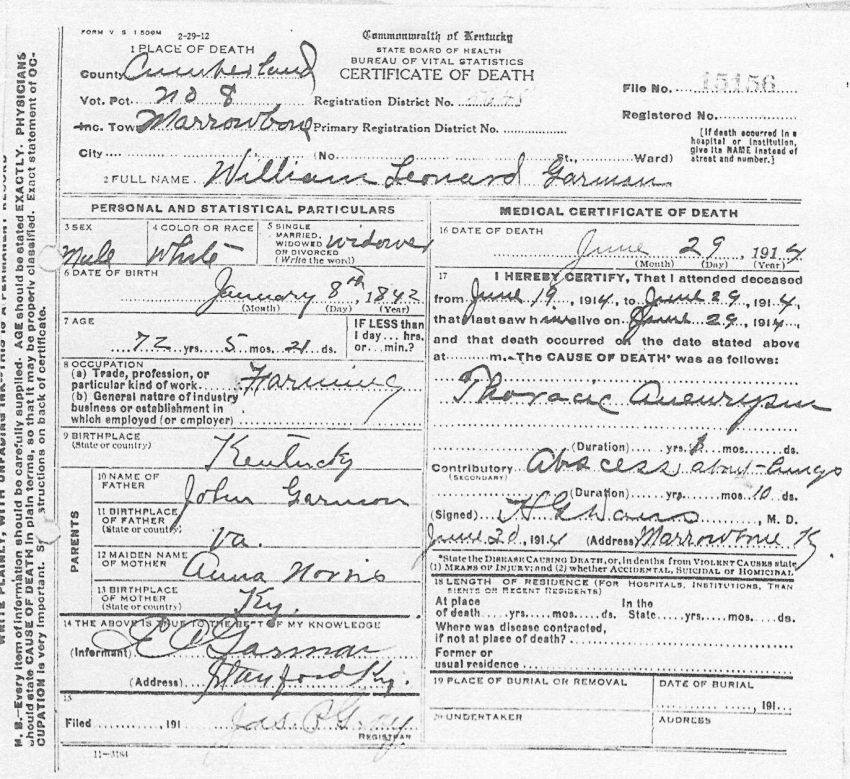 FORM V S 1 500M 2-29-12
Commonwealth of Kentucky
STATE BOARD OF HEALTH
BUREAU OF VITAL STATISTICS
CERTIFICATE OF DEATH
1 PLACE OF DEATH
County Cumberland
Vot. Pct. No 8 Registration District No.
File No. 15156
Inc. Town Marrowbone Primary Registration District No.
Registered No.
City (No. St., Ward)
[If death occurred in a hospital or institution, give its NAME instead of street and number.]
2 FULL NAME William Leonard Garmon
PERSONAL AND STATISTICAL PARTICULARS
3 SEX Male
4 COLOR OR RACE White
5 SINGLE MARRIED, WIDOWED OR DIVORCED (Write the word) Widower
6 DATE OF BIRTH
January 8th, 1842
(Month) (Day) (Year)
7 AGE
72 yrs 5 mos. 21 ds.
IF LESS than 1 day... hrs. or... min.?
8 OCCUPATION
(a) Trade, profession, or
particular kind of work Farming
(b) General nature of industry
business or establishment in
which employed (or employer)
9 BIRTHPLACE
(State or country) Kentucky
PARENTS
10 NAME OF FATHER John Garmon
11 BIRTHPLACE OF FATHER (State or country) Va.
12 MAIDEN NAME OF MOTHER Anna Norris
13 BIRTHPLACE OF MOTHER (State or country) Ky.
14 THE ABOVE IS TRUE TO THE BEST OF MY KNOWLEDGE
(Informant) Garmon
(Address) Stanford Ky.
15
Filed , 191
REGISTRAR
11-3184
MEDICAL CERTIFICATE OF DEATH
16 DATE OF DEATH
June 29, 1914
(Month) (Day) (Year)
17 I HEREBY CERTIFY, That I attended deceased
from June 19, 1914, to June 29, 1914,
that I last saw him alive on June 29, 1914,
and that death occurred on the date stated above
at m. The CAUSE OF DEATH* was as follows:
Thoracic Aneurysm
(Duration) yrs. mos. ds.
Contributory Abscess about lungs
(SECONDARY)
(Duration) yrs. mos. 10 ds.
(Signed) , M. D.
June 20, 1914 (Address) Marrowbone K.
*State the DISEASE CAUSING DEATH, or, in deaths from VIOLENT CAUSES state
(1) MEANS OF INJURY; and (2) whether ACCIDENTAL, SUICIDAL or HOMICIDAL
18 LENGTH OF RESIDENCE (FOR HOSPITALS, INSTITUTIONS, TRAN
SIENTS OR RECENT RESIDENTS)
At place In the
of death yrs. mos. ds. State yrs. mos. ds.
Where was disease contracted,
if not at place of death?
Former or
usual residence
19 PLACE OF BURIAL OR REMOVAL
DATE OF BURIAL
, 191
20 UNDERTAKER
ADDRESS
WRITE PLAINLY, WITH UNFADING INK—THIS IS A PERMANENT RECORD
N. B.—Every item of information should be carefully supplied. AGE should be stated EXACTLY. PHYSICIANS
should state CAUSE OF DEATH in plain terms, so that it may be properly classified. Exact statement of OC-
CUPATION is very important. structions on back of certificate.